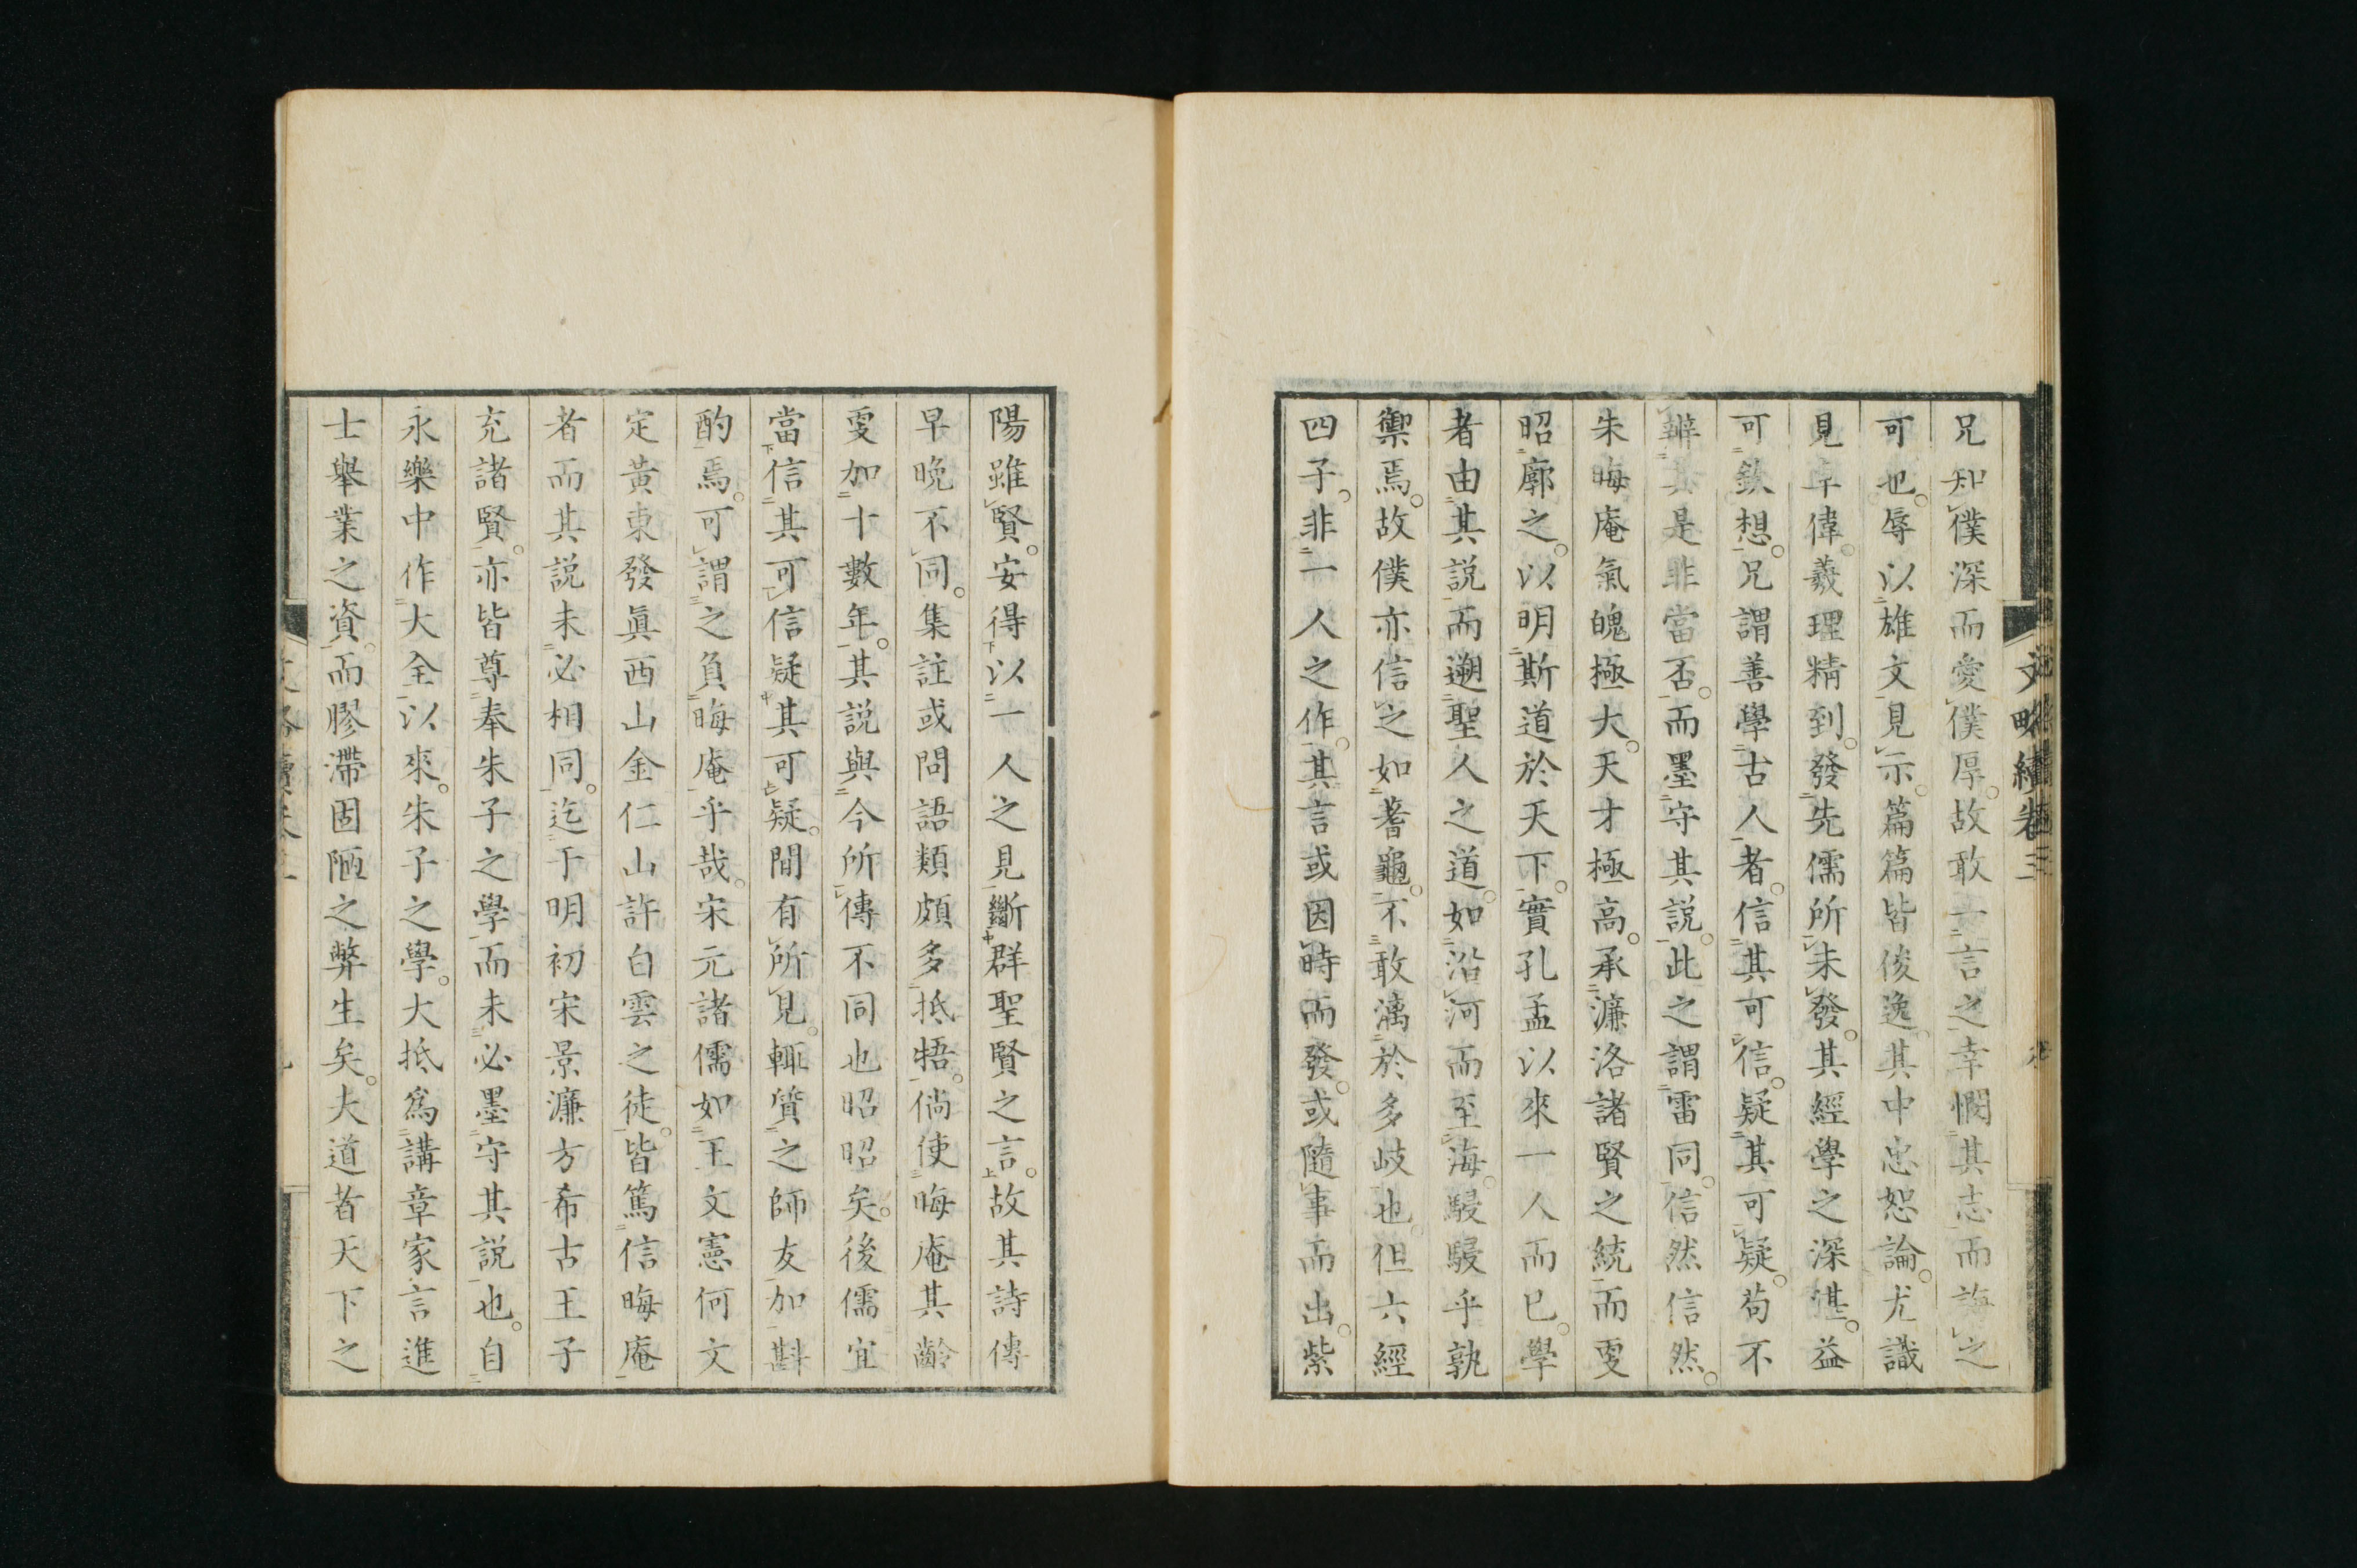 兄知僕深而愛僕厚。故敢一言之幸憫其志而誨之
可也。辱以雄文見示。篇篇皆俊逸。其中忠恕論。尤識
見卓偉。義理精到。發先儒所未發。其經學之深湛。益
可欽想。兄謂善學古人者。信其可信。疑其可疑。苟不
辨其是非當否。而墨守其說。此之謂雷同。信然信然。
朱晦庵氣魄極大。天才極高。承濂洛諸賢之統而更
昭廓之。以明斯道於天下。實孔孟以來一人而已。學
者由其説而遡聖人之道。如沿河而至海。駸駸乎孰
禦焉。故僕亦信之如蓍龜。不敢漓於多岐也。但六經
四子。非一人之作。其言或因時而發。或隨事而出。紫
文略續卷三
陽雖賢。安得以一人之見斷群聖賢之言。故其詩傳
早晚不同。集註或問語類頗多抵牾。倘使晦庵其齡
更加十數年。其説與今所傳不同也昭昭矣。後儒宜
當信其可信疑其可疑。間有所見。輒質之師友加斟
酌焉。可謂之負晦庵乎哉。宋元諸儒如王文憲何文
定黃東發眞西山金仁山許白雲之徒。皆篤信晦庵
者而其説未必相同。迄于明初宋景濂方希古王子
充諸賢。亦皆尊奉朱子之學而未必墨守其說也。自
永樂中作大全以來。朱子之學。大抵爲講章家言進
士舉業之資。而膠滯固陋之弊生矣。夫道者天下之